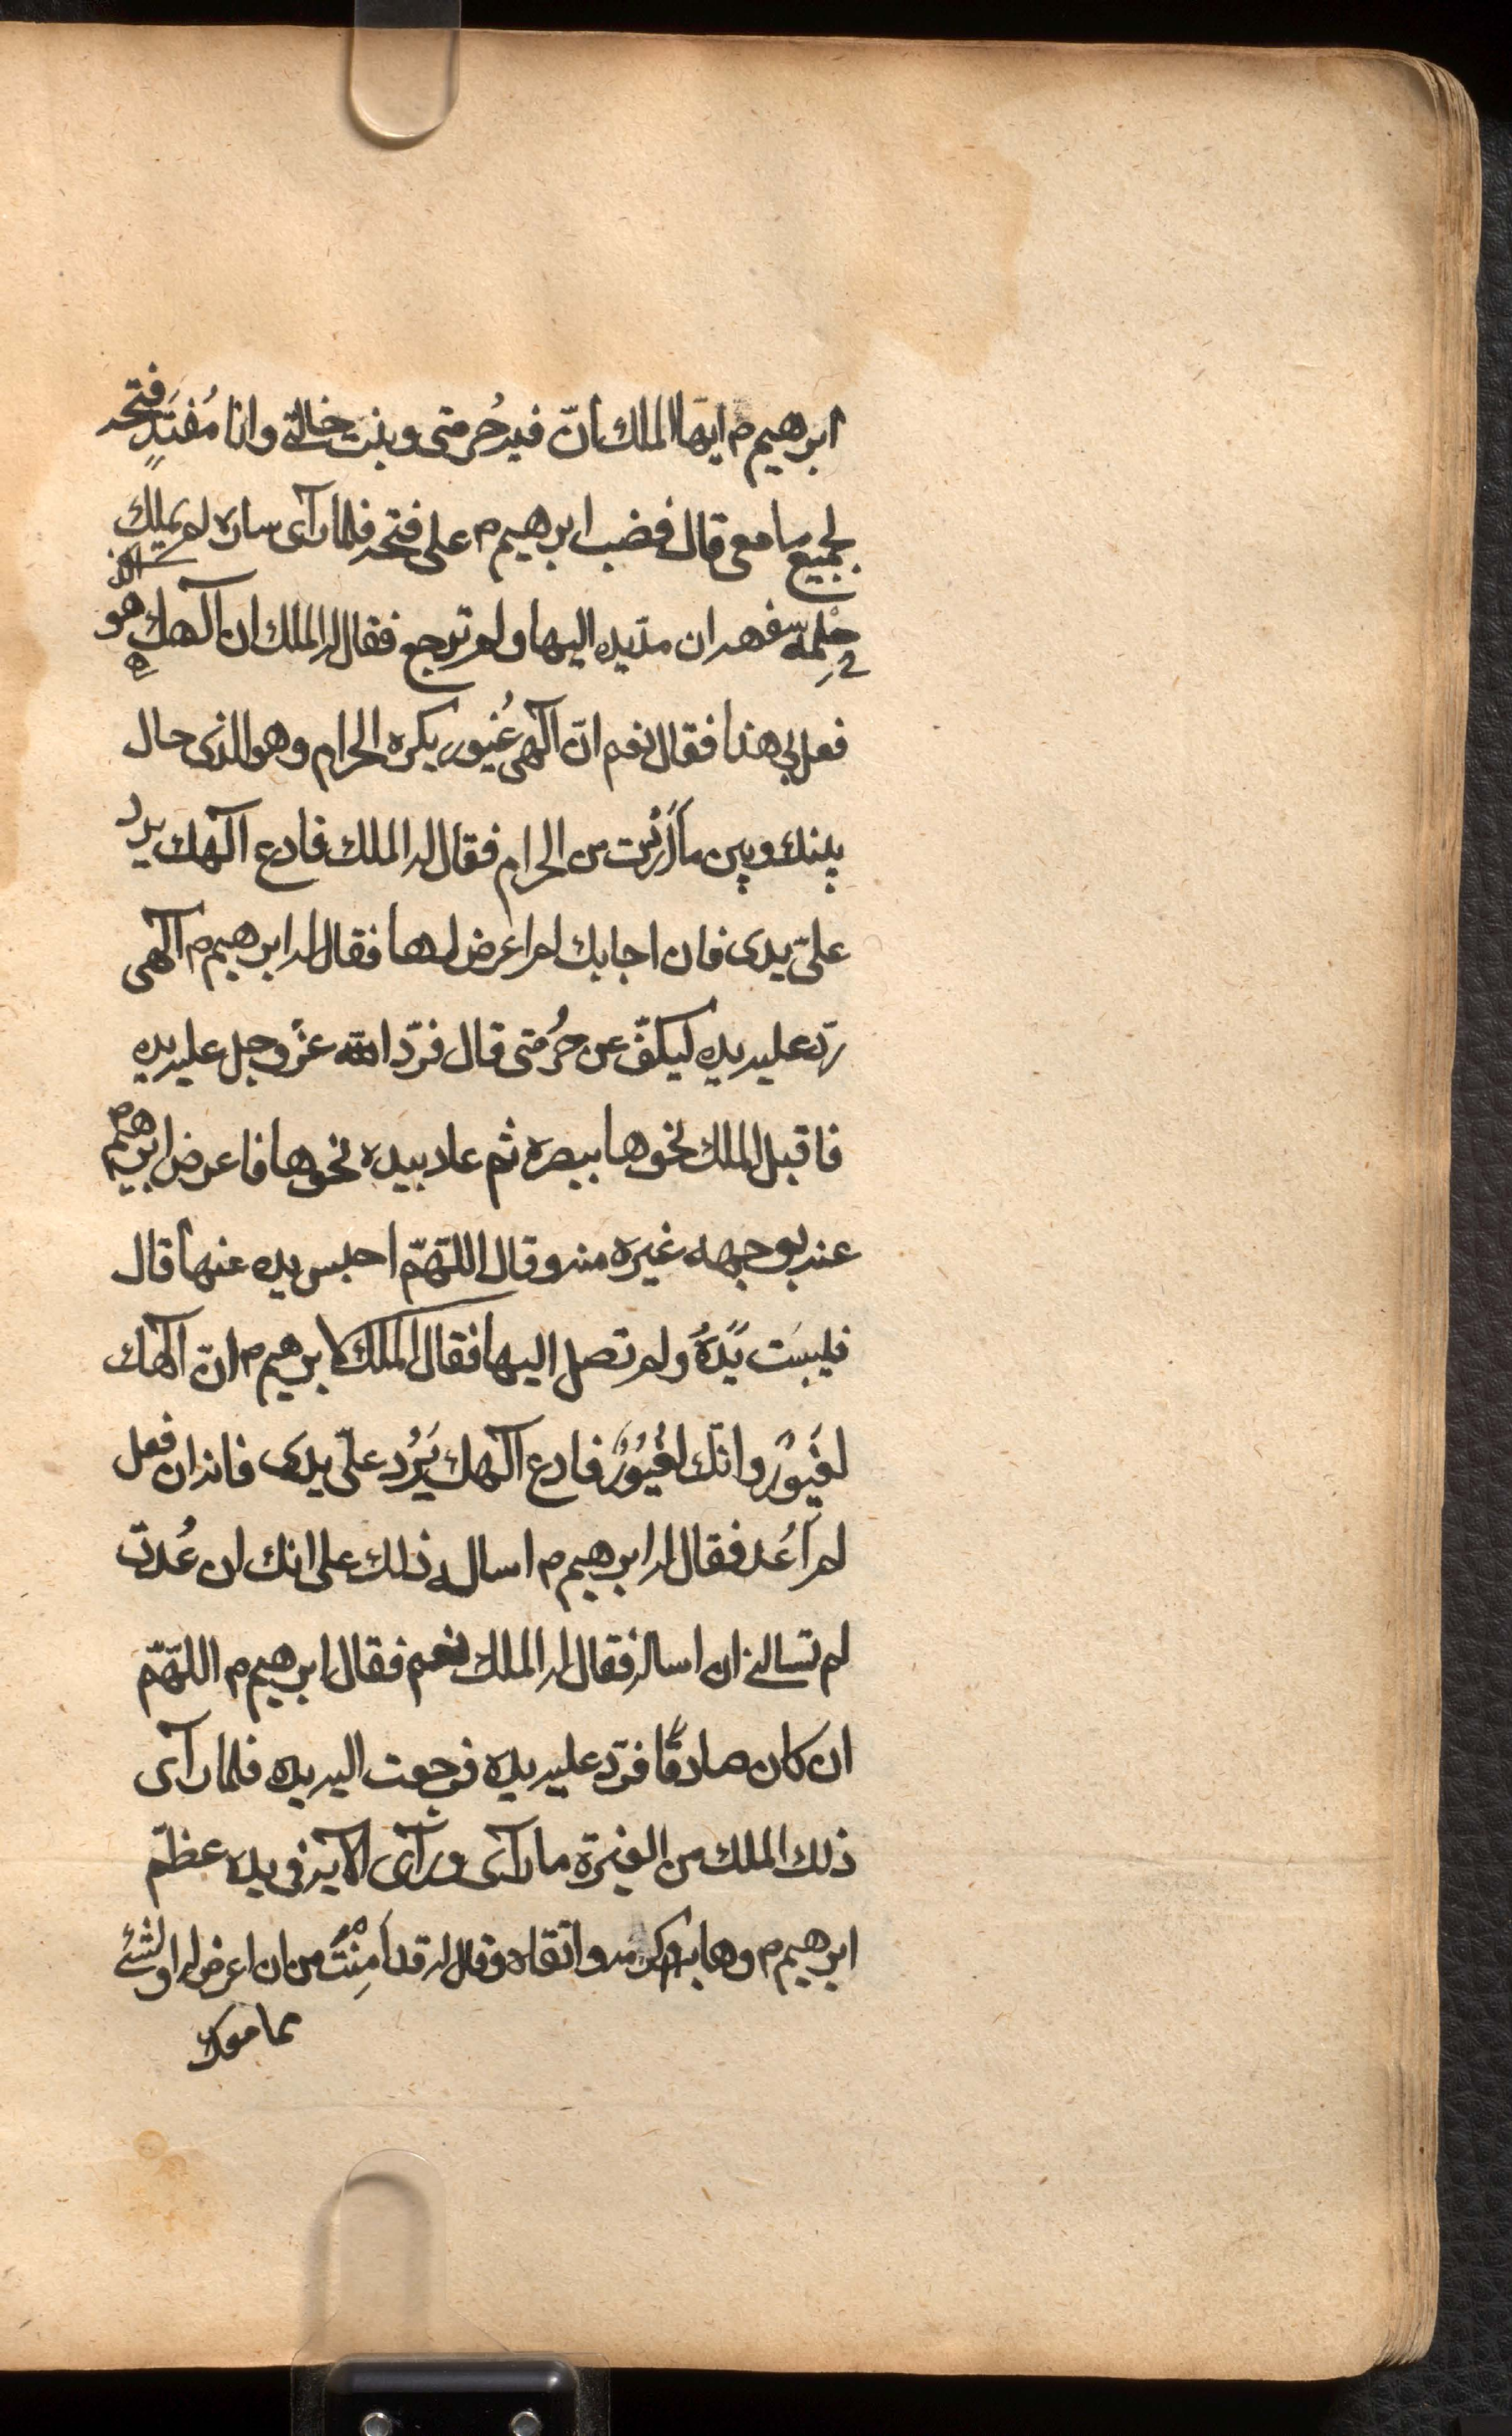 ابرهيم م ايها الملك انّ فيه حُرمتى وبنت خالتى وانا مُفتَدٍ فتحه
لجميع ما معى قال فغضب ابرهيم م على فتحه فلما رآى ساره لم يملك
حلمه سفهه ان مدّ يده اليها ولم ترجع فقال له الملك ان آلهك هو الذى
فعل بى هذا فقال نعم انّ آلهى غُيور يكره الحرام وهو الذى حال
بينك وبين ما اَرَدْت من الحرام فقال له الملك فادع آلهك يردّ
علىّ يدى فان اجابك لم اعرض لها فقال ابرهيم م آلهى
ردّ عليه يده ليكفّ عن حُرمتى قال فردّ الله عزّ وجل عليه يده
فاقبل الملك نحوها ببصره ثم عاد بيده نحوها فاعرض ابرهيم م
عنه بوجهه غيره منه وقال اللّهمّ احبس يده عنها قال
فيبسَت يَدَهُ ولم تصل اليها فقال الملك لابرهيم م انّ آلهك
لغَيورٌ وانّك لغَيُورٌ فادع آلهك يَرُد علىّ يدى فانه ان فعل
لم اَعُد فقال له ابرهيم م اساله ذلك على انك ان عُدتّ
لم تسالنى ان اساله فقال له الملك نعم فقال ابرهيم م اللّهمّ
ان كان صادقًا فردّ عليه يده فرجعت اليه يده فلما رآى
ذلك الملك من الغيرة ما رآى ورآى الآية فى يده عظّم
ابرهيم م وهابه واكرمه واتقاه وقال له قد اَمِنْتَ من ان اعرض لها او لشئ
مما معك